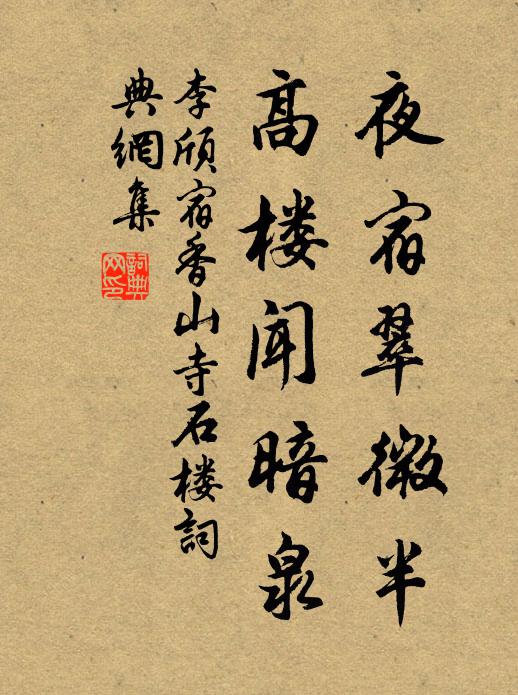 夜宿翠微半
高楼闻暗泉
李颀宿香山寺石楼詞
典網集
詞典网印